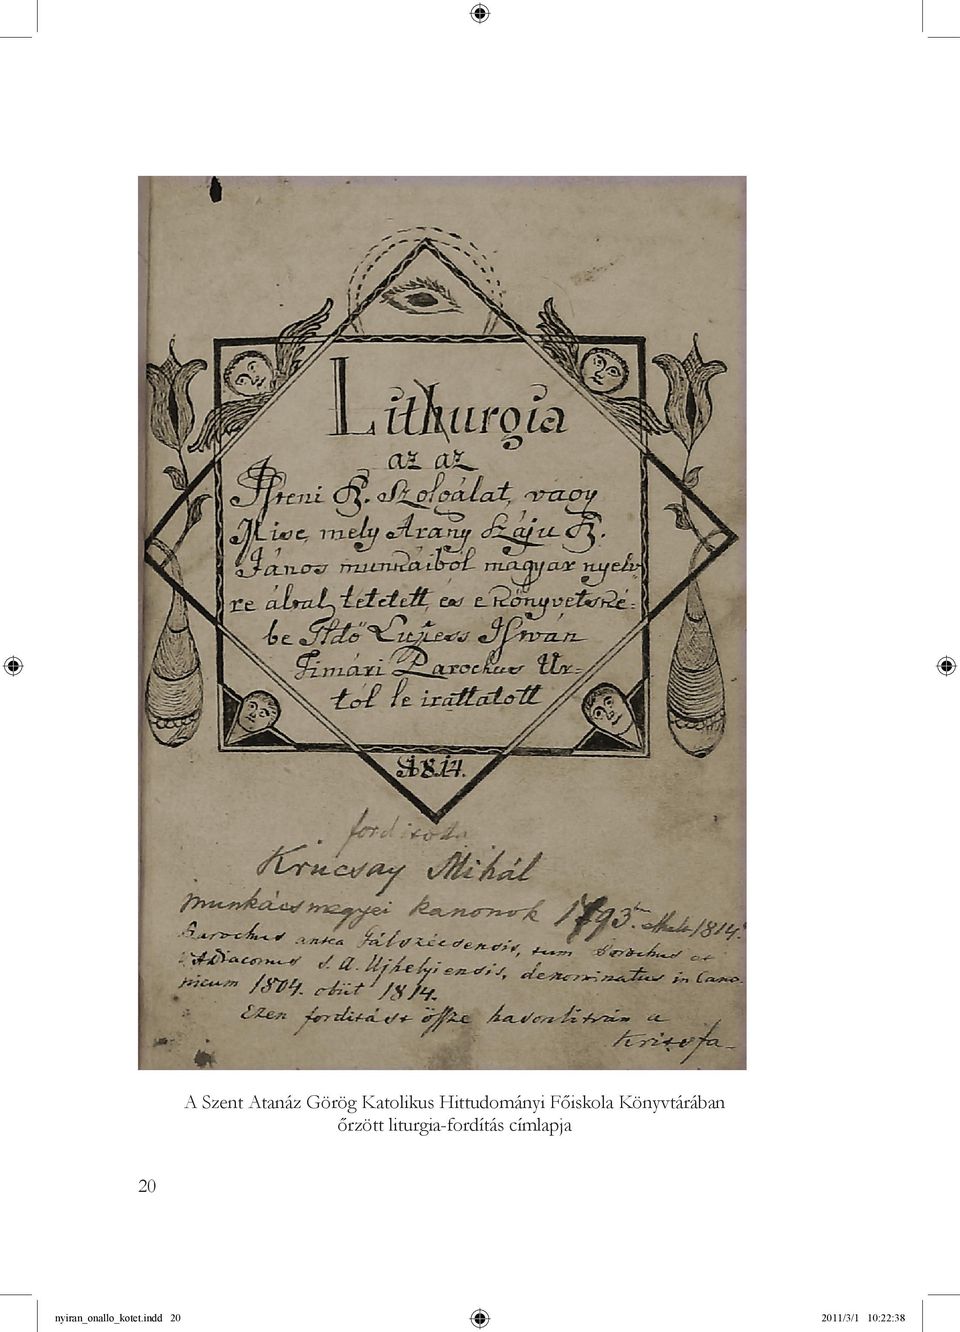 Lithurgia
az az
Isteni Sz. Szolgálat, vagy
Mise, mely Arany Száju Sz.
János munkáiból magyar nyelv-
re által tétetett, és e könyvetské-
be Ildő Lupess Istwán
Timári Parochus Úr-
tól le irattatott
1814.
fordította
Krucsay Mihál
munkácsmegyei kanonok 1793.
Parochus antea Gálszécsensis, tum Parochus et
ADiaconus S. A. Ujhelyiensis, denominatus in Cano-
nicum 1804. obiit 1814.
Ezen fordítást össze hasonlítván a
Kritsfa-
A Szent Atanáz Görög Katolikus Hittudományi Főiskola Könyvtárában
őrzött liturgia-fordítás címlapja
20
nyiran_onallo_kotet.indd 20
2011/3/1 10:22:38